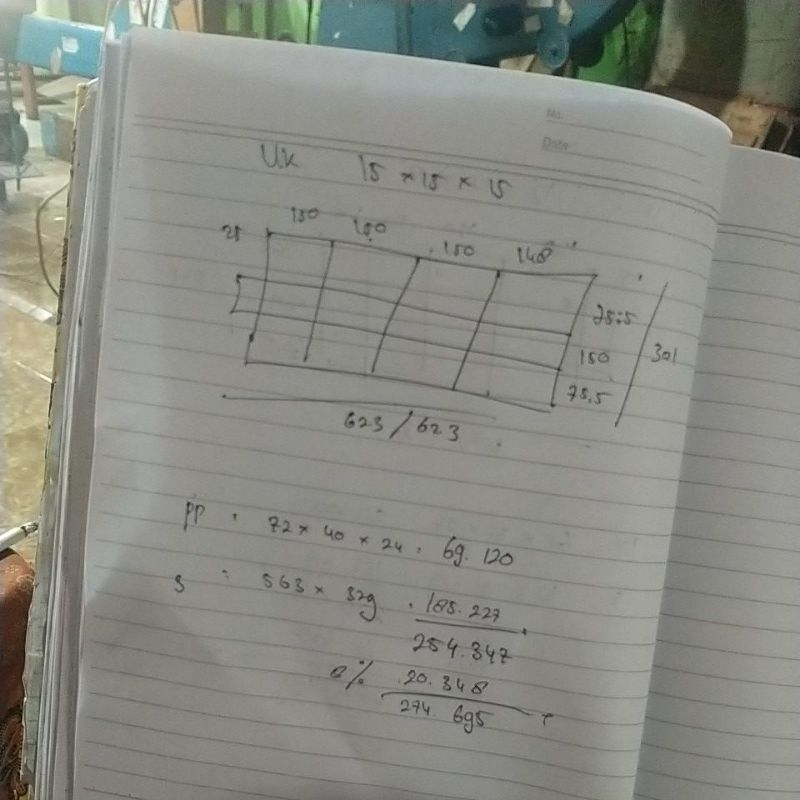 No.
Date
Uk 15 × 15 × 15
25 150 150 150 148
75.5
150 301
75.5
623 / 623
pp : 72 × 40 × 24 = 69.120
S : 563 × 329 = 185.227
254.347
8% 20.348
274.695